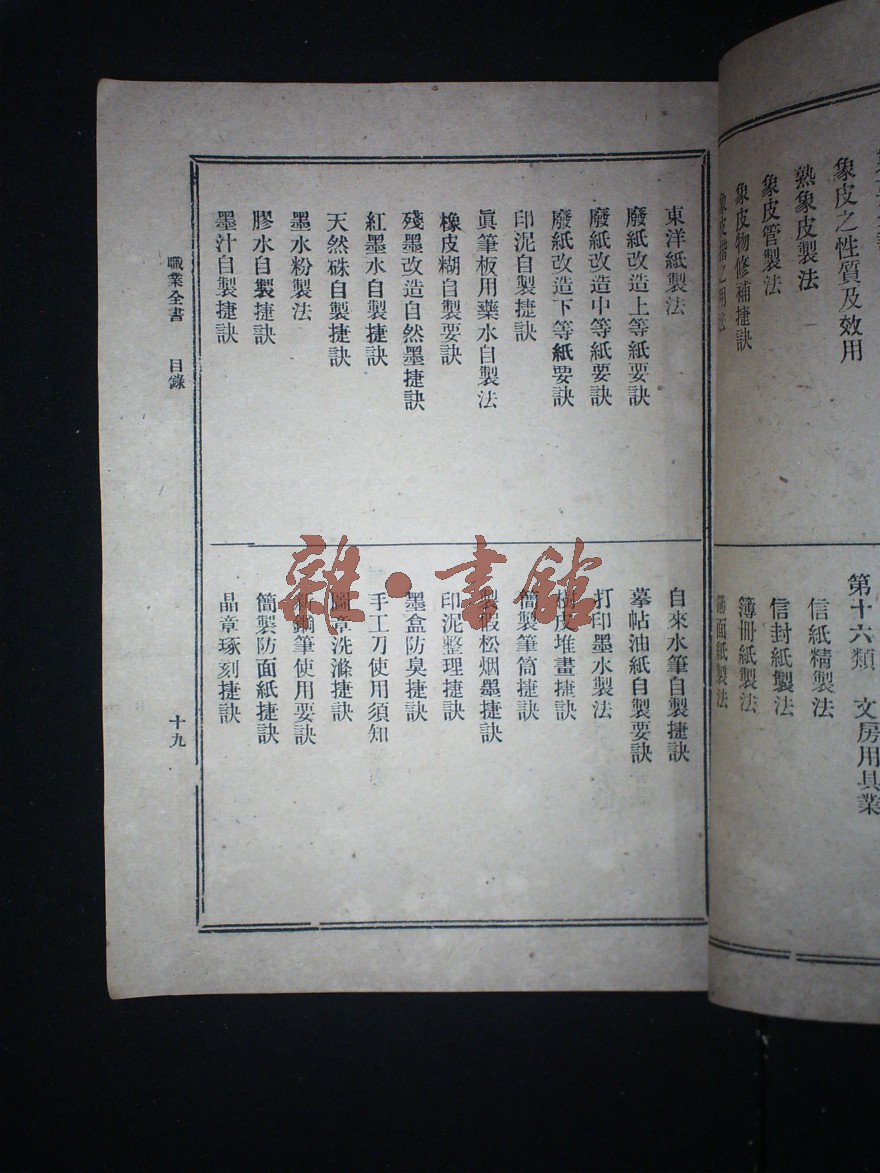 象皮之性質及效用
熟象皮製法
象皮管製法
象皮物修補捷訣
第十六類 文房用具業
信紙精製法
信封紙製法
簿冊紙製法
簿面紙製法
東洋紙製法
廢紙改造上等紙要訣
廢紙改造中等紙要訣
廢紙改造下等紙要訣
印泥自製捷訣
眞筆板用藥水自製法
橡皮糊自製要訣
殘墨改造自然墨捷訣
紅墨水自製捷訣
天然硃自製捷訣
墨水粉製法
膠水自製捷訣
墨汁自製捷訣
自来水筆自製捷訣
摹帖油紙自製要訣
打印墨水製法
樹皮堆畫捷訣
簡製筆筒捷訣
製假松烟墨捷訣
印泥整理捷訣
墨盒防臭捷訣
手工刀使用須知
圖章洗滌捷訣
新鋼筆使用要訣
簡製防面紙捷訣
晶章琢刻捷訣
職業全書 目錄
十九
雜·書館